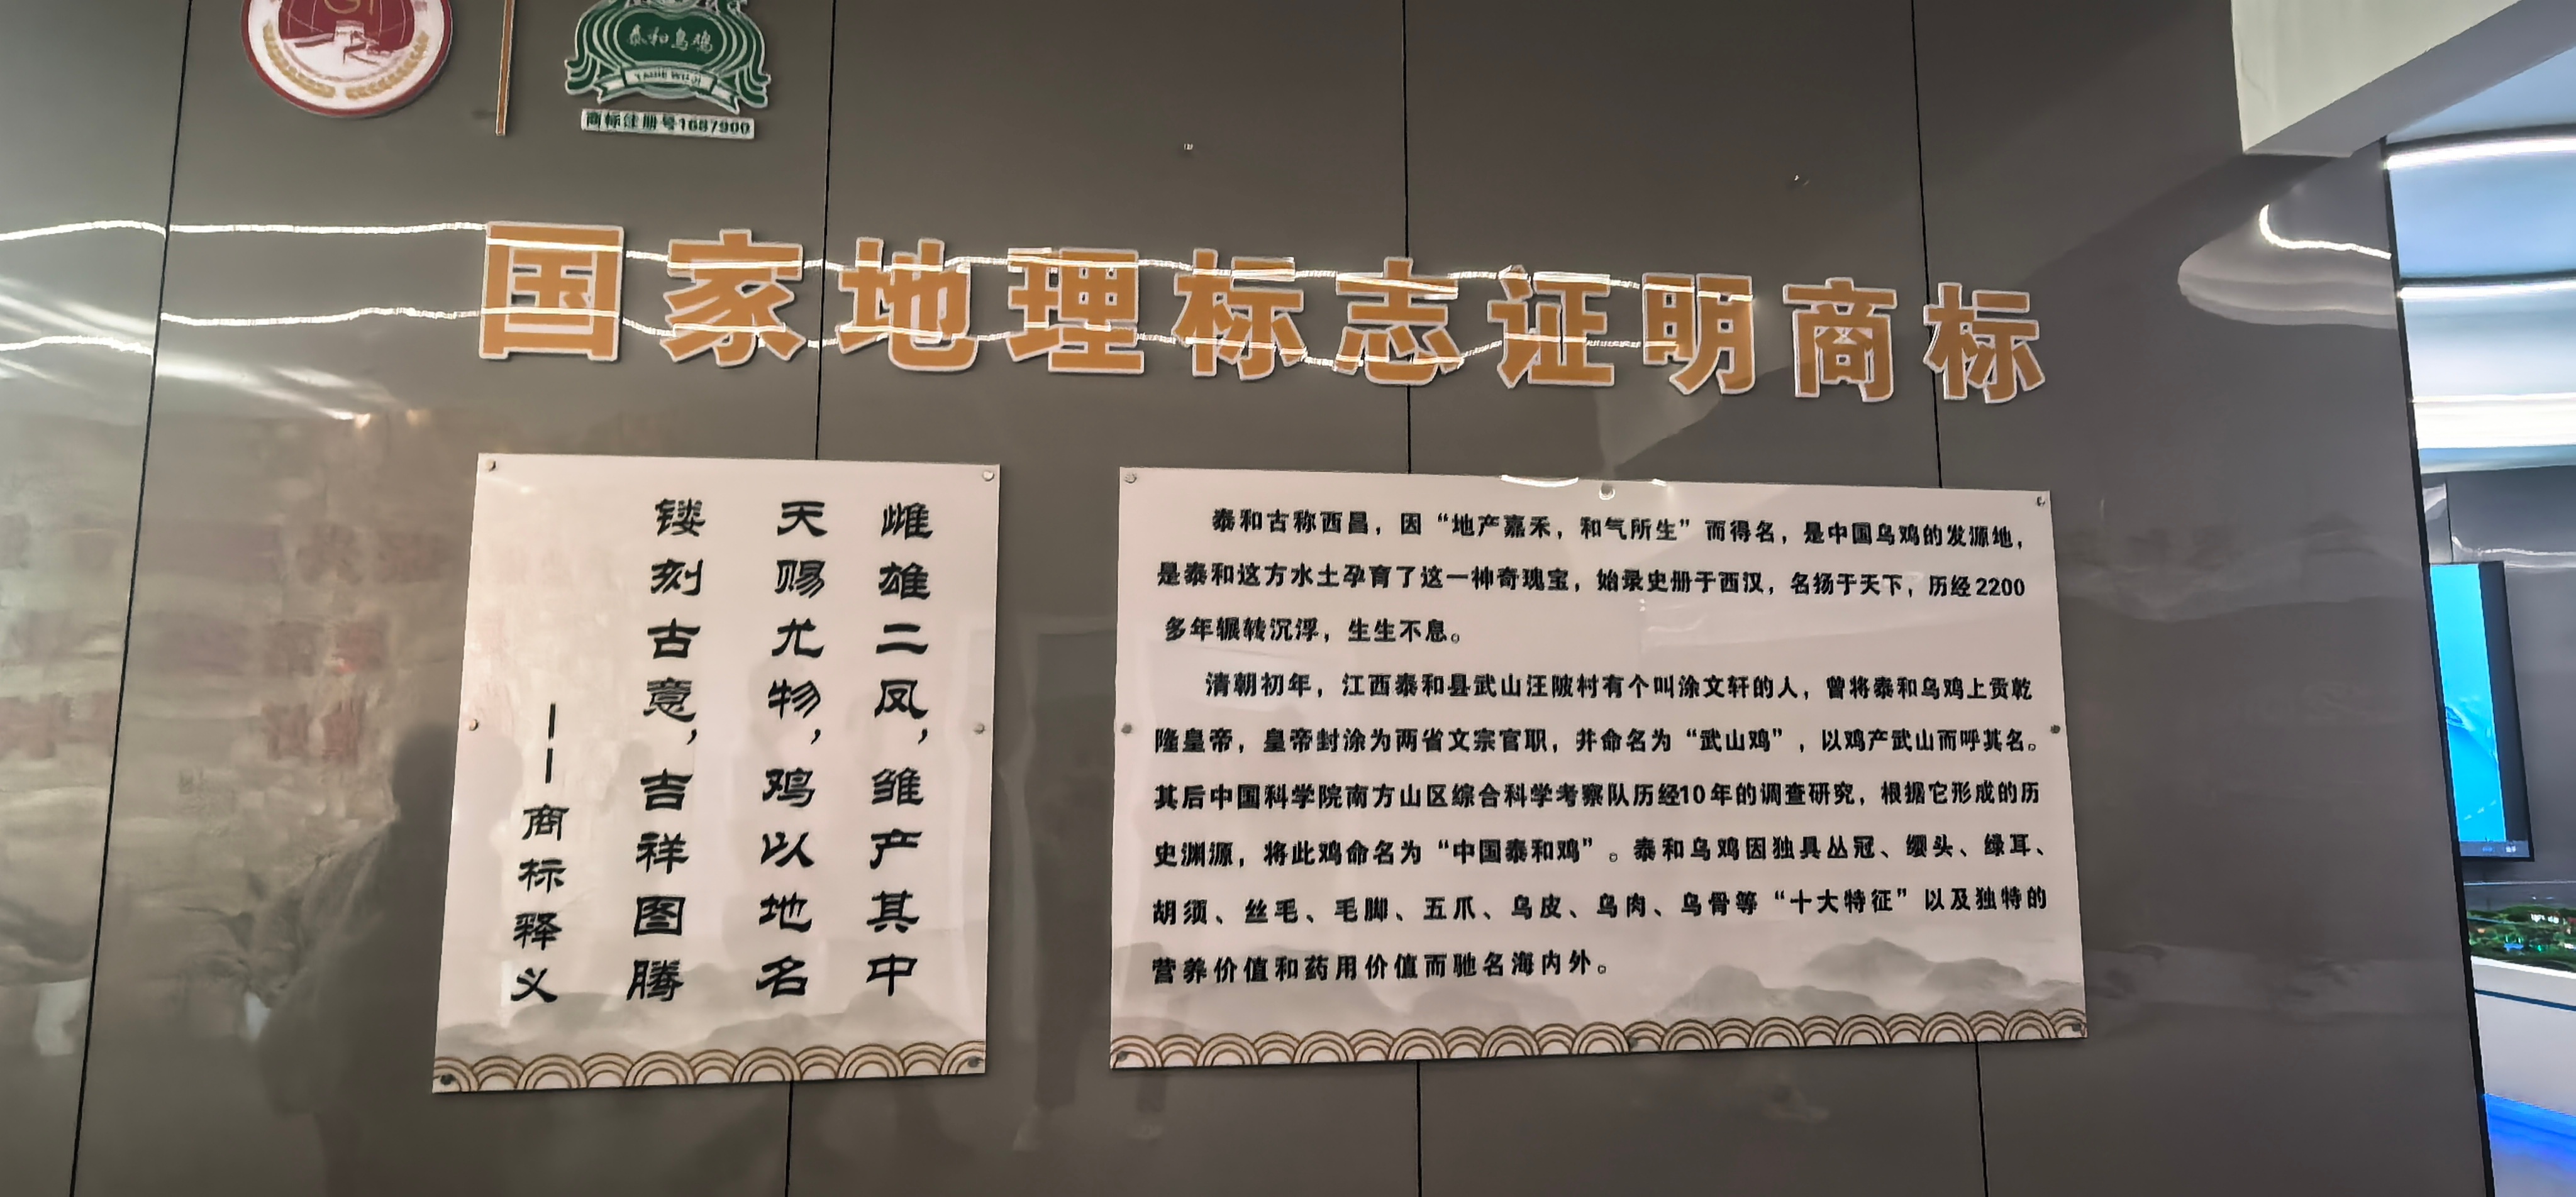 GI
泰和乌鸡
TAIHE WUJI
商标注册号1687900
国家地理标志证明商标
雌雄二凤，雏产其中
天赐尤物，鸡以地名
镂刻古意，吉祥图腾
——商标释义
泰和古称西昌，因“地产嘉禾，和气所生”而得名，是中国乌鸡的发源地，
是泰和这方水土孕育了这一神奇瑰宝，始录史册于西汉，名扬于天下，历经2200
多年辗转沉浮，生生不息。
清朝初年，江西泰和县武山汪陂村有个叫涂文轩的人，曾将泰和乌鸡上贡乾
隆皇帝，皇帝封涂为两省文宗官职，并命名为“武山鸡”，以鸡产武山而呼其名。
其后中国科学院南方山区综合科学考察队历经10年的调查研究，根据它形成的历
史渊源，将此鸡命名为“中国泰和鸡”。泰和乌鸡因独具丛冠、缨头、绿耳、
胡须、丝毛、毛脚、五爪、乌皮、乌肉、乌骨等“十大特征”以及独特的
营养价值和药用价值而驰名海内外。